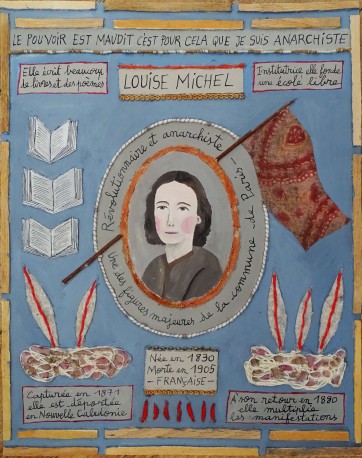 LE POUVOIR EST MAUDIT C'EST POUR CELA QUE JE SUIS ANARCHISTE
Elle écrit beaucoup
de livres et des poèmes
LOUISE MICHEL
Institutrice elle fonde
une école libre
Révolutionnaire et anarchiste
Une des figures majeures de la commune de Paris
Capturée en 1871
elle est déportée
en Nouvelle Calédonie
Née en 1830
Morte en 1905
- FRANÇAISE -
A son retour en 1880
elle multiplie
les manifestations